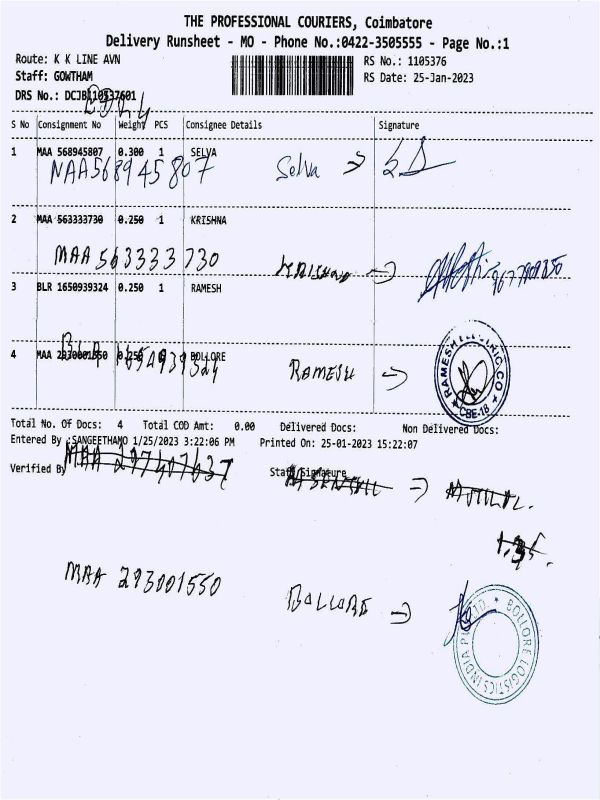 THE PROFESSIONAL COURIERS, Coimbatore
Delivery Runsheet - MO - Phone No.:0422-3505555 - Page No.:1
Route: K K LINE AVN RS No.: 1105376
Staff: GOWTHAM RS Date: 25-Jan-2023
DRS No.:
S No Consignment No Weight PCS Consignee Details Signature
1 MAA 568945807 0.300 1 SELVA
MAA568945807 Selva
2 MAA 563333730 0.250 1 KRISHNA
MAA 563333730 KRISHNA
3 BLR 1650939324 0.250 1 RAMESH
RAMESH ELECTRIC CO CBE-18
4 MAA BOLLORE
RAMESH
Total No. Of Docs: 4 Total COD Amt: 0.00 Delivered Docs: Non Delivered Docs:
Entered By :SANGEETHAMO 1/25/2023 3:22:06 PM Printed On: 25-01-2023 15:22:07
Verified By Staff Signature
MAA 293001550 BOLLORE
BOLLORE LOGISTICS INDIA